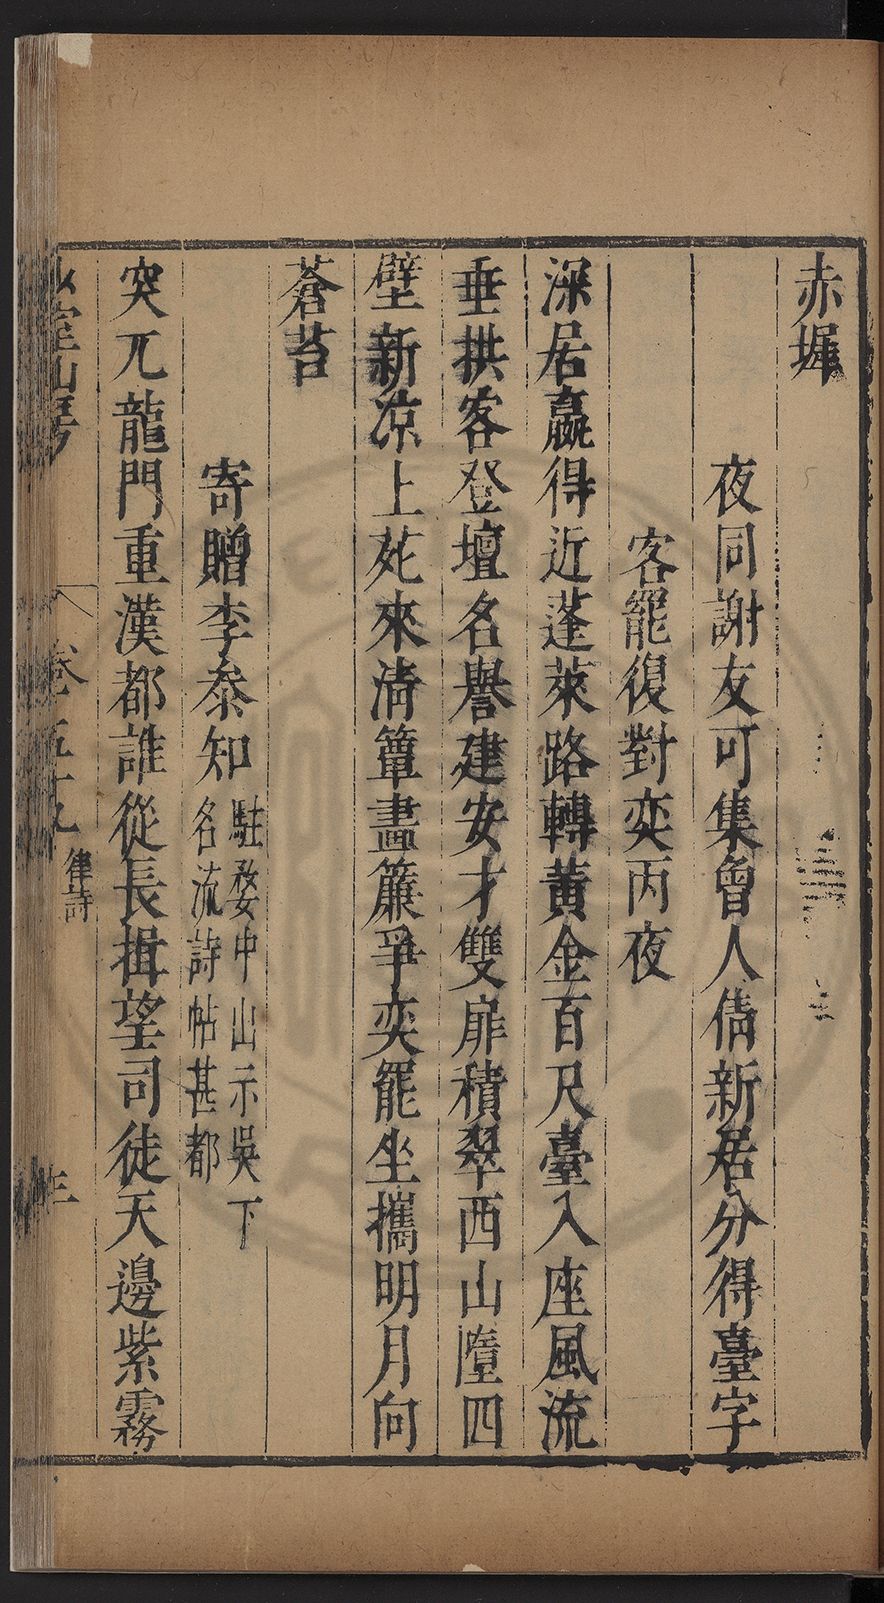 赤墀
夜同謝友可集曾人倩新居分得臺字
客罷復對奕丙夜
深居嬴得近蓬萊路轉黃金百尺臺入座風流
垂拱客登壇名譽建安才雙扉積翠西山墮四
壁新凉上苑來清簟畫簾爭奕罷坐攜明月向
蒼苔
寄贈李叅知
駐婺中山示吳下
名流詩帖甚都
突兀龍門重漢都誰從長揖望司徒天邊紫霧
少室山房
卷五十九
律詩
三